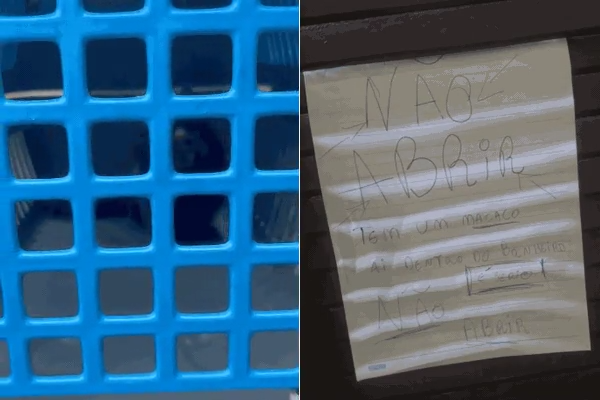 NÃO
ABRIR
TEM UM MACACO
AÍ DENTRO DO BANHEIRO
É SÉRIO!
NÃO
ABRIR